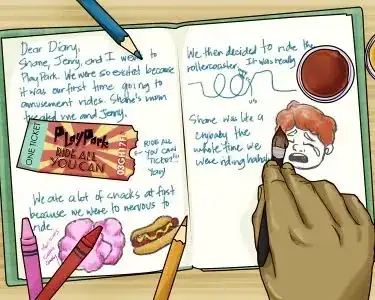 Dear Diary,
Shane, Jenny, and I went to
PlayPark. We were so excited because
it was our first time going to
amusement rides. Shane's mom
treated me and Jenny.
ONE TICKET
PlayPark
RIDE ALL
YOU CAN
RIDE ALL
YOU CAN
TICKET!!!
Yay!
We ate a lot of snacks at first
because we were to nervous to
ride.
We then decided to ride the
rollercoaster. It was really
us
Shane was like a
crybaby the
whole time we
were riding haha!